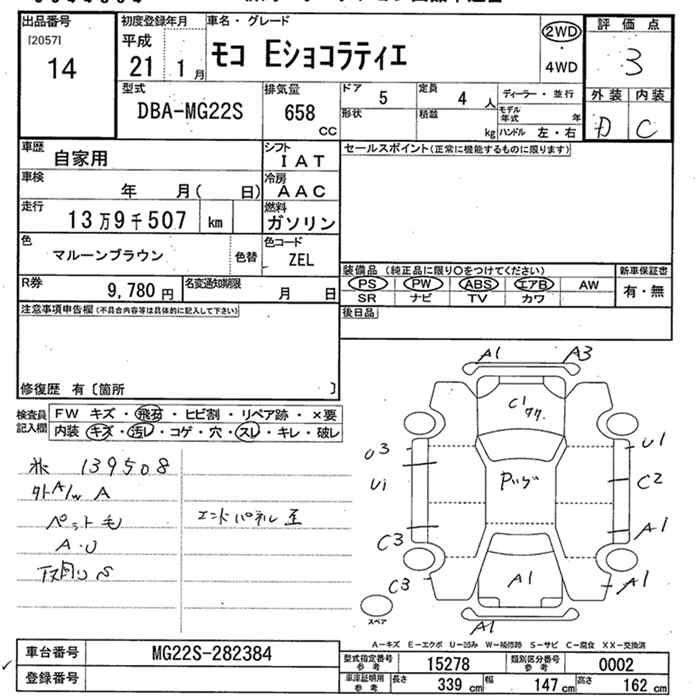 出品番号 初度登録年月 車名・グレード 評価点
[2057] 平成 2WD
14 21 1月 モコ Eショコラティエ 4WD 3
型式 排気量 ドア 5 定員 4人 ディーラー・並行 外装 内装
DBA-MG22S 658 CC 形状 積載 kg モデル年式 年 D C
ハンドル 左・右
車歴 自家用 シフト IAT セールスポイント(正常に機能するものに限ります)
車検 年 月( 日) 冷房 AAC
走行 13万9千507 km 燃料 ガソリン
色 マルーンブラウン 色替 色コード ZEL
装備品(純正品に限り○をつけてください) 新車保証書
R券 9,780円 名変通知期限 月 日 PS PW ABS エアB AW 有・無
SR ナビ TV カワ
注意事項申告欄(不具合内容等は具体的に記入して下さい) 後日品
修復歴 有〔箇所 〕
検査員記入欄 FW キズ・飛石・ヒビ割・リペア跡・×要
内装 キズ・汚レ・コゲ・穴・スレ・キレ・破レ
A1 A3
C1
U3 U1
139508
A
U1 C2
ペット毛 エンドパネル
A・U
C3 A1
S
C3 A1 A1
スペア
A1
A-キズ E-エクボ U-凹み W-補修跡 S-サビ C-腐食 XX-交換済
車台番号 MG22S-282384
型式指定番号参考 15278 類別区分番号参考 0002
登録番号
車庫証明用参考 長さ 339 cm 幅 147 cm 高さ 162 cm